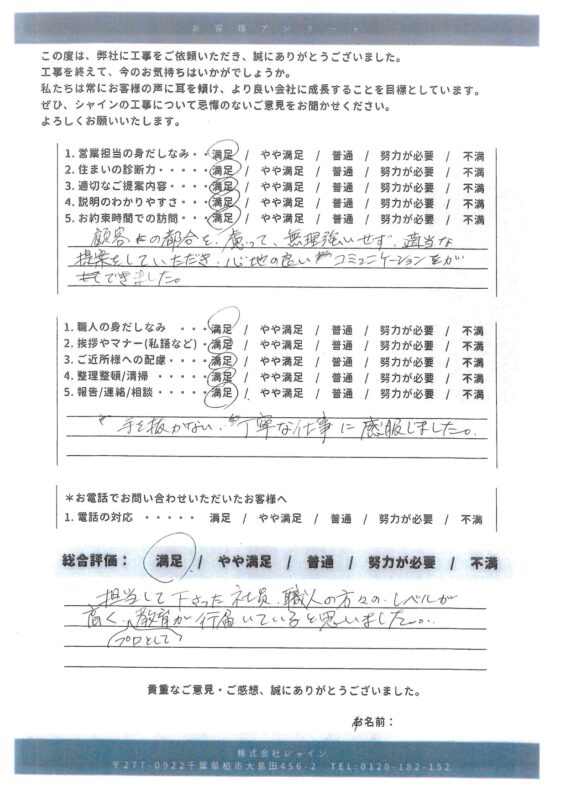 お客様アンケート
この度は、弊社に工事をご依頼いただき、誠にありがとうございました。
工事を終えて、今のお気持ちはいかがでしょうか。
私たちは常にお客様の声に耳を傾け、より良い会社に成長することを目標としています。
ぜひ、シャインの工事について忌憚のないご意見をお聞かせください。
よろしくお願いいたします。
1. 営業担当の身だしなみ・・満足 / やや満足 / 普通 / 努力が必要 / 不満
2. 住まいの診断力・・・・・満足 / やや満足 / 普通 / 努力が必要 / 不満
3. 適切なご提案内容・・・・満足 / やや満足 / 普通 / 努力が必要 / 不満
4. 説明のわかりやすさ・・・満足 / やや満足 / 普通 / 努力が必要 / 不満
5. お約束時間での訪問・・・満足 / やや満足 / 普通 / 努力が必要 / 不満
顧客の都合を、慮って、無理強いせず、適当な
提案をしていただき、心地の良いコミュニケーションが
できました。
1. 職人の身だしなみ ・・・満足 / やや満足 / 普通 / 努力が必要 / 不満
2. 挨拶やマナー(私語など)・満足 / やや満足 / 普通 / 努力が必要 / 不満
3. ご近所様への配慮・・・・満足 / やや満足 / 普通 / 努力が必要 / 不満
4. 整理整頓/清掃 ・・・・満足 / やや満足 / 普通 / 努力が必要 / 不満
5. 報告/連絡/相談・・・・満足 / やや満足 / 普通 / 努力が必要 / 不満
手を抜かない、丁寧な仕事に感服しました。
＊お電話でお問い合わせいただいたお客様へ
1. 電話の対応 ・・・・・ 満足 / やや満足 / 普通 / 努力が必要 / 不満
総合評価： 満足 / やや満足 / 普通 / 努力が必要 / 不満
担当して下さった社員、職人の方々の、レベルが
高く、教育が行届いていると思いました。
プロとして
貴重なご意見・ご感想、誠にありがとうございました。
お名前：
株式会社シャイン
〒277-0922千葉県柏市大島田456-2 TEL:0120-182-152